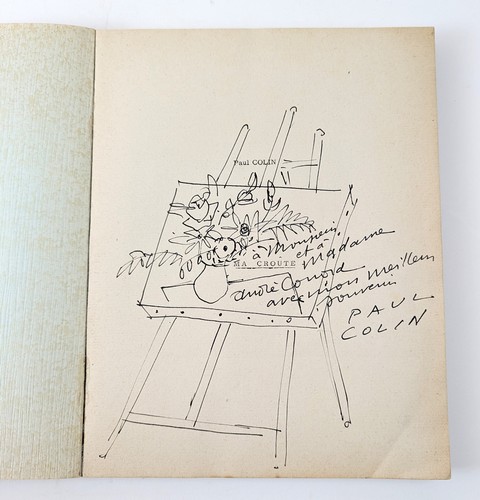 Paul COLIN
à Monsieur
et à
Madame
MA CROUTE
andré
avec mon meilleur
souvenir
PAUL
COLIN